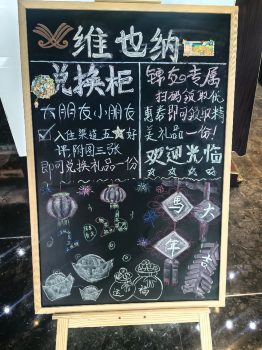 维也纳
兑换柜
大朋友小朋友
入住渠道五★好
评,附图三张
即可兑换礼品一份
专属
扫码领取优
惠券即可领取精
美礼品一份!
欢迎光临
馬
年
大
吉
福